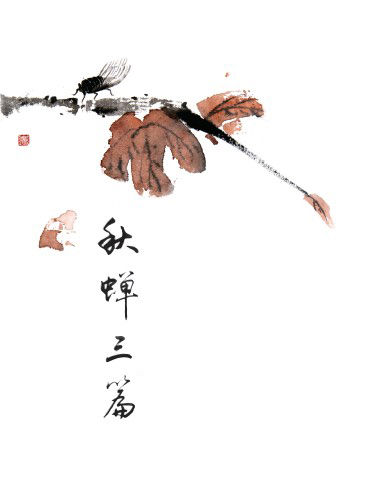 秋蝉三篇